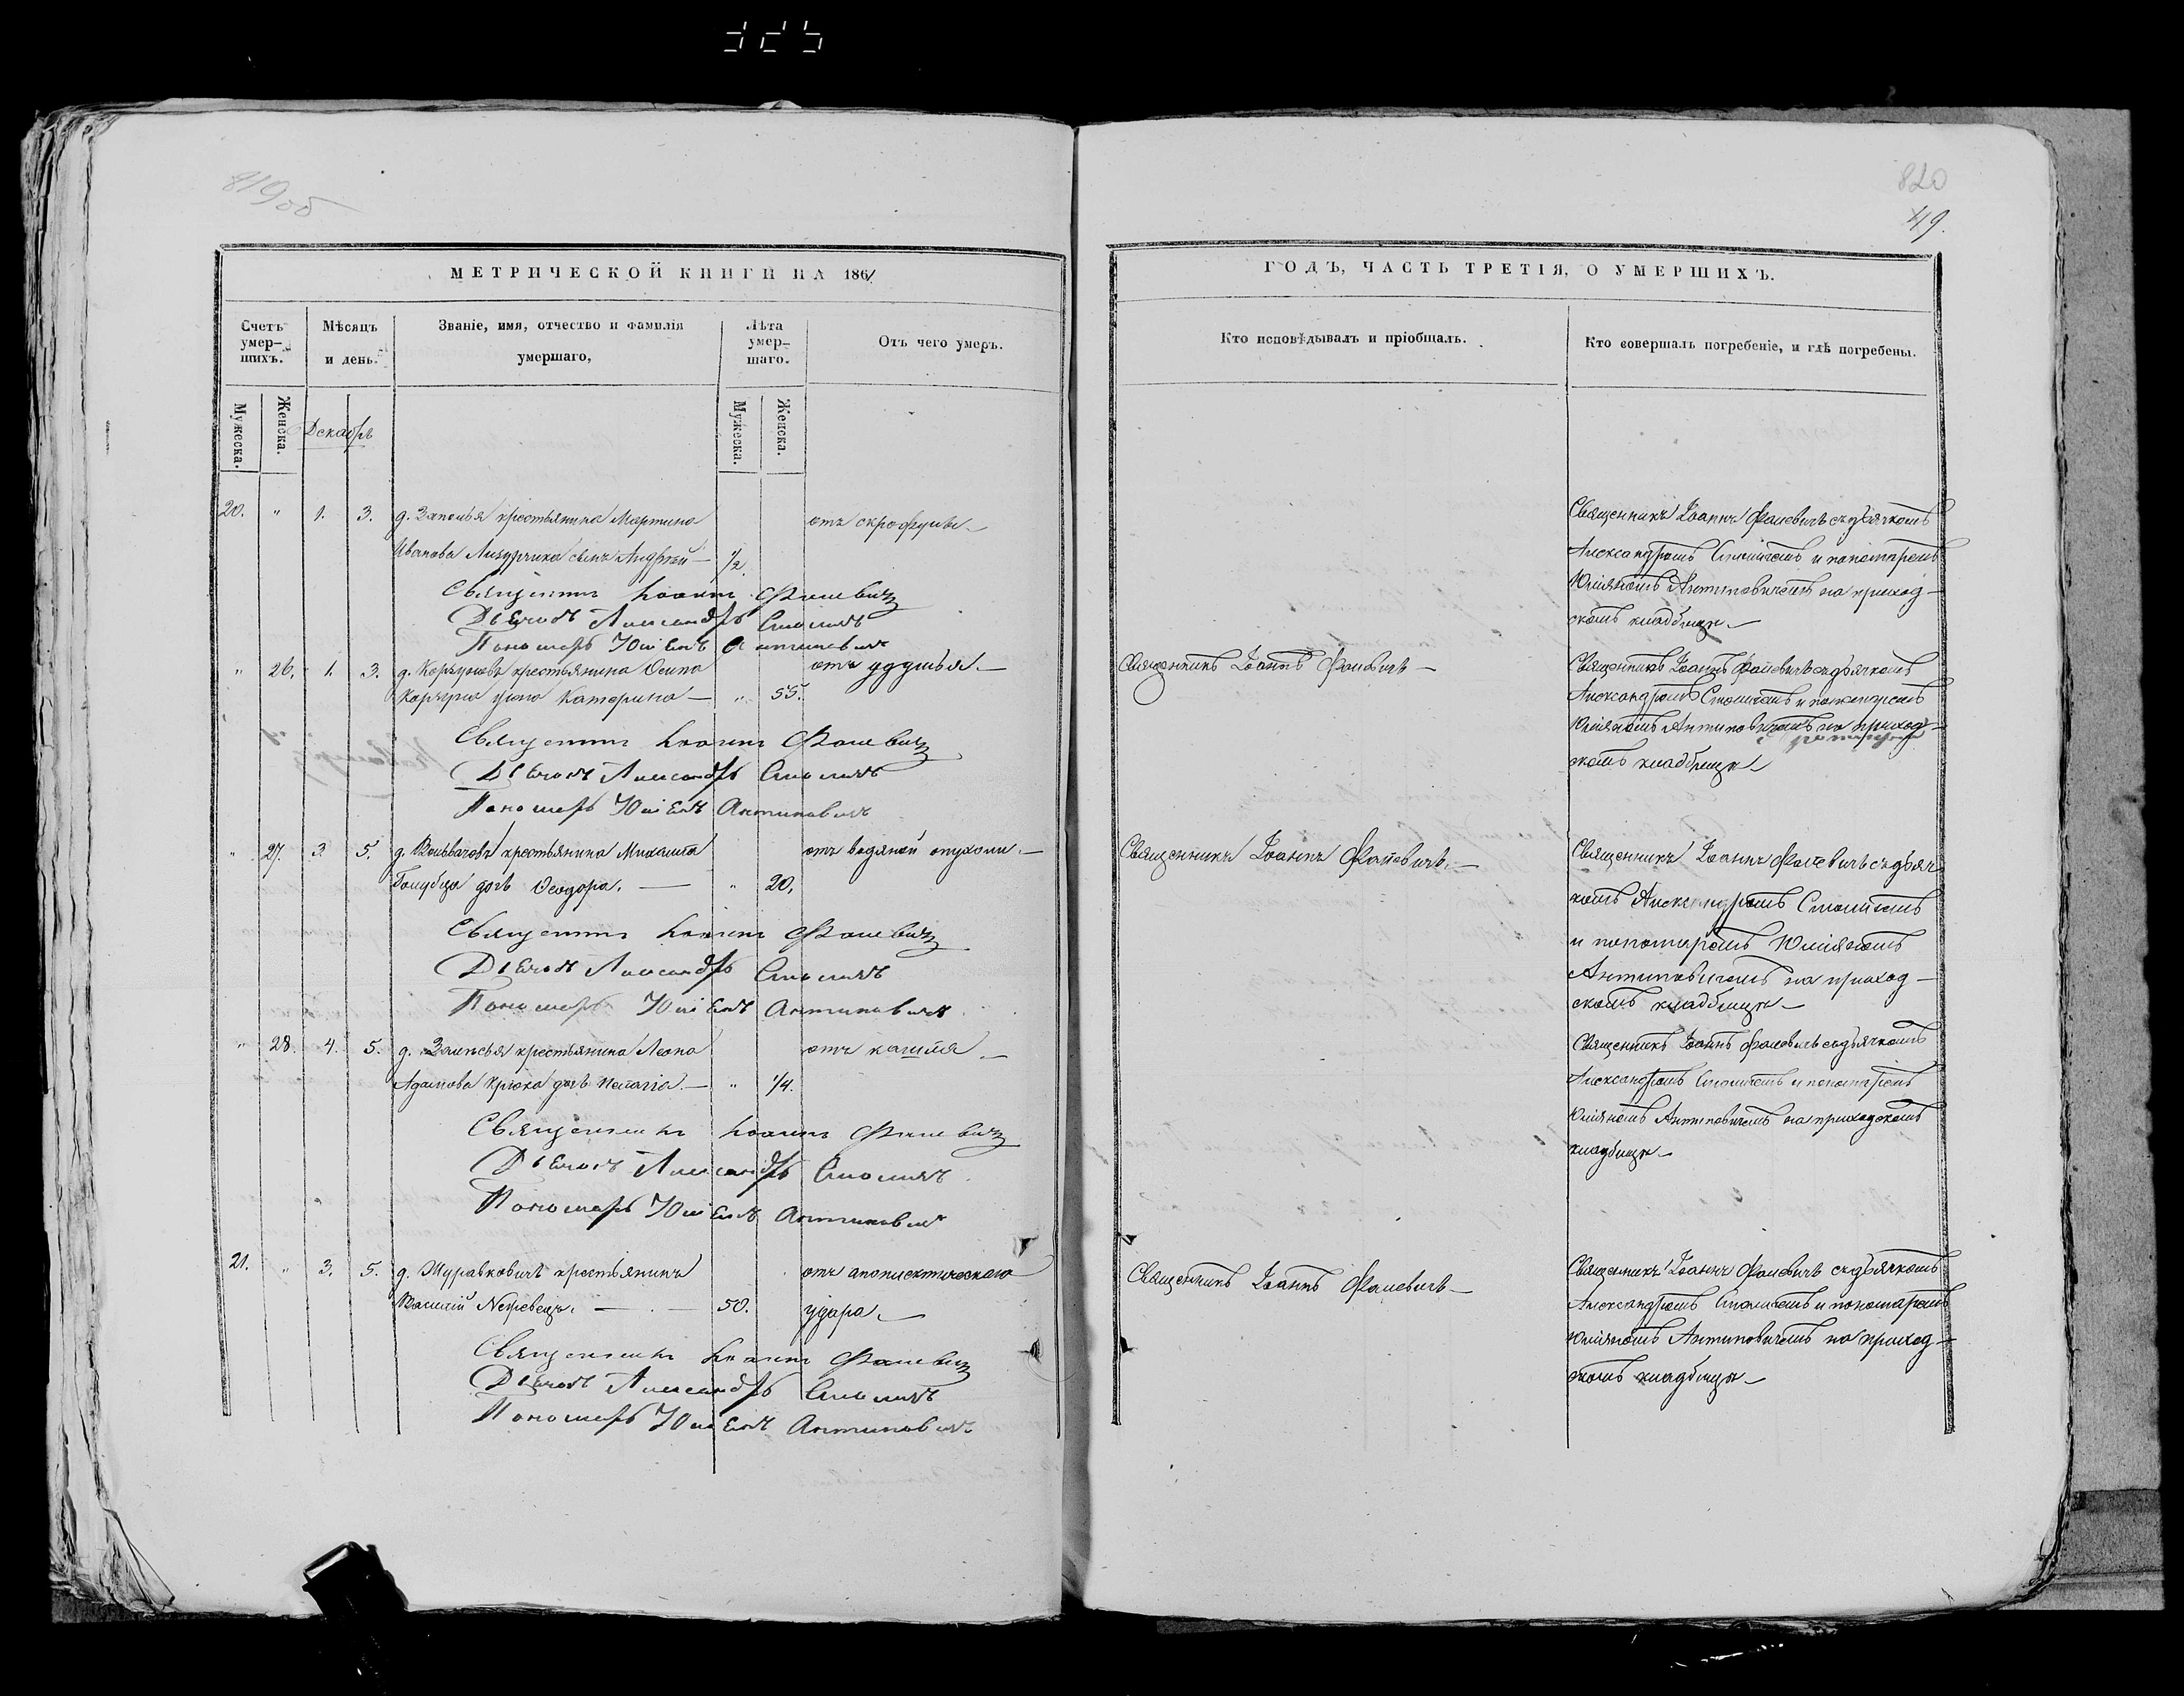 325
819об
820
49.
МЕТРИЧЕСКОЙ КНИГИ НА 1861
Счетъ умер-шихъ.
Мѣсяцъ и день.
Званіе, имя, отчество и фамилія умершаго,
Лѣта умер-шаго.
Отъ чего умеръ.
Мужеска.
Женска.
Декабрь
Мужеска.
Женска.
20. " 1. 3. д. Заполья крестьянина Мартина отъ скрофулы.—
Иванова сынъ Андрей — 1/2
Священникъ Іоаннъ Фалевичъ
Дьячокъ Александръ Смоличъ
Пономарь Юліянъ Антиповичъ
" 26. 1. 3. д. крестьянина Осипа отъ удушья.—
жена Катерина — " 55.
Священникъ Іоаннъ Фалевичъ
Дьячокъ Александръ Смоличъ
Пономарь Юліянъ Антиповичъ
" 27. 3. 5. д. крестьянина Михаила отъ водяной опухоли.—
Голубца дочь Ѳеодора. — " 20.
Священникъ Іоаннъ Фалевичъ
Дьячокъ Александръ Смоличъ
Пономарь Юліянъ Антиповичъ
" 28. 4. 5. д. Залѣсья крестьянина Леона отъ кашля.—
Адамова Крюка дочь Пелагія.— " 1/4.
Священникъ Іоаннъ Фалевичъ
Дьячокъ Александръ Смоличъ
Пономарь Юліянъ Антиповичъ
21. " 3. 5. д. Журавковичъ крестьянинъ отъ апоплектическаго
Василій — 50. удара.—
Священникъ Іоаннъ Фалевичъ
Дьячокъ Александръ Смоличъ
Пономарь Юліянъ Антиповичъ
ГОДЪ, ЧАСТЬ ТРЕТІЯ, О УМЕРШИХЪ.
Кто исповѣдывалъ и пріобщалъ.
Кто совершалъ погребеніе, и гдѣ погребены.
Священникъ Іоаннъ Фалевичъ съ дьячкомъ
Александромъ Смоличемъ и пономаремъ
Юліяномъ Антиповичемъ на приход-
скомъ кладбищѣ—
Священникъ Іоаннъ Фалевичъ —
Священникъ Іоаннъ Фалевичъ съ дьячкомъ
Александромъ Смоличемъ и пономаремъ
Юліяномъ Антиповичемъ на приход-
скомъ кладбищѣ—
Священникъ Іоаннъ Фалевичъ.—
Священникъ Іоаннъ Фалевичъ съ дьяч
комъ Александромъ Смоличемъ
и пономаремъ Юліяномъ
Антиповичемъ на приход-
скомъ кладбищѣ—
Священникъ Іоаннъ Фалевичъ съ дьячкомъ
Александромъ Смоличемъ и пономаремъ
Юліяномъ Антиповичемъ на приходскомъ
кладбищѣ—
Священникъ Іоаннъ Фалевичъ—
Священникъ Іоаннъ Фалевичъ съ дьячкомъ
Александромъ Смоличемъ и пономаремъ
Юліяномъ Антиповичемъ на приход-
скомъ кладбищѣ—